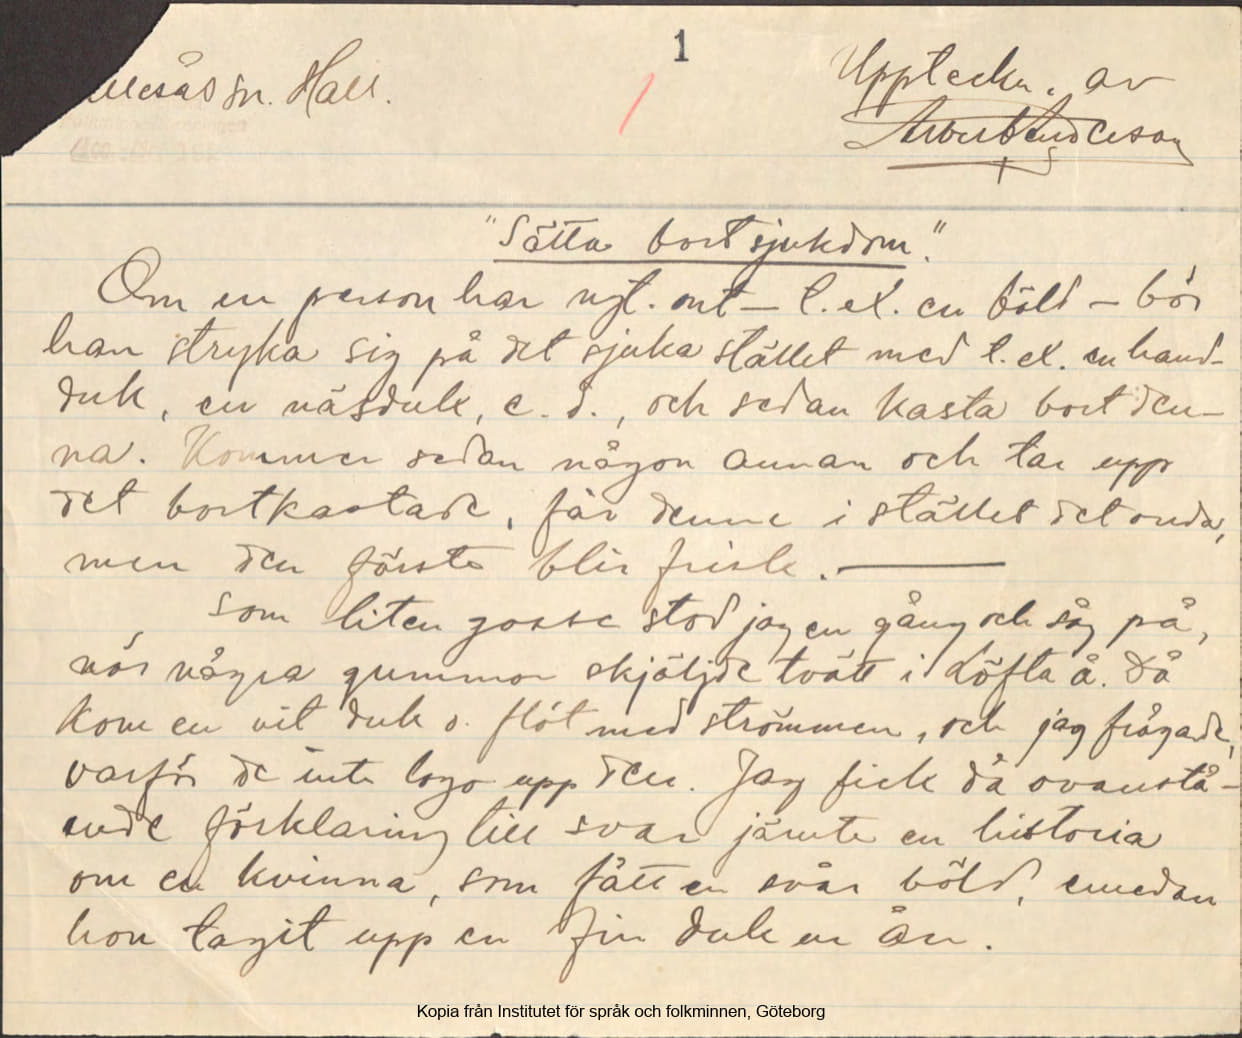 1
sn. Hall.
Uppteckn. av
"Sätta bort sjukdom."
Om en person har ngt. ont – t. ex. en böld – bör
han stryka sig på det sjuka stället med t. ex. en hand-
duk, en näsduk, e. d., och sedan kasta bort den-
na. Kommer sedan någon annan och tar upp
det bortkastade, får denne i stället det onda,
men den förste blir frisk. —
Som liten gosse stod jag en gång och såg på,
när några gummor skjöljde tvätt i Löfta å. Då
kom en vit duk o. flöt med strömmen, och jag frågade,
varför de inte togo upp den. Jag fick då ovanstå-
ende förklaring till svar jämte en historia
om en kvinna, som fått en svår böld, emedan
hon tagit upp en fin duk ur ån.
Kopia från Institutet för språk och folkminnen, Göteborg